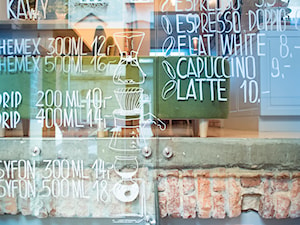 KAWY
HEMEX 300ML 12,-
HEMEX 500ML 16,-
RIP 200ML 10.-
RIP 400ML 14.-
SYFON 300ML 14,-
SYFON 500ML 18,-
ESPRESSO
ESPRESSO DOPPIO
FLAT WHITE 8.
CAPUCCINO
LATTE 10.